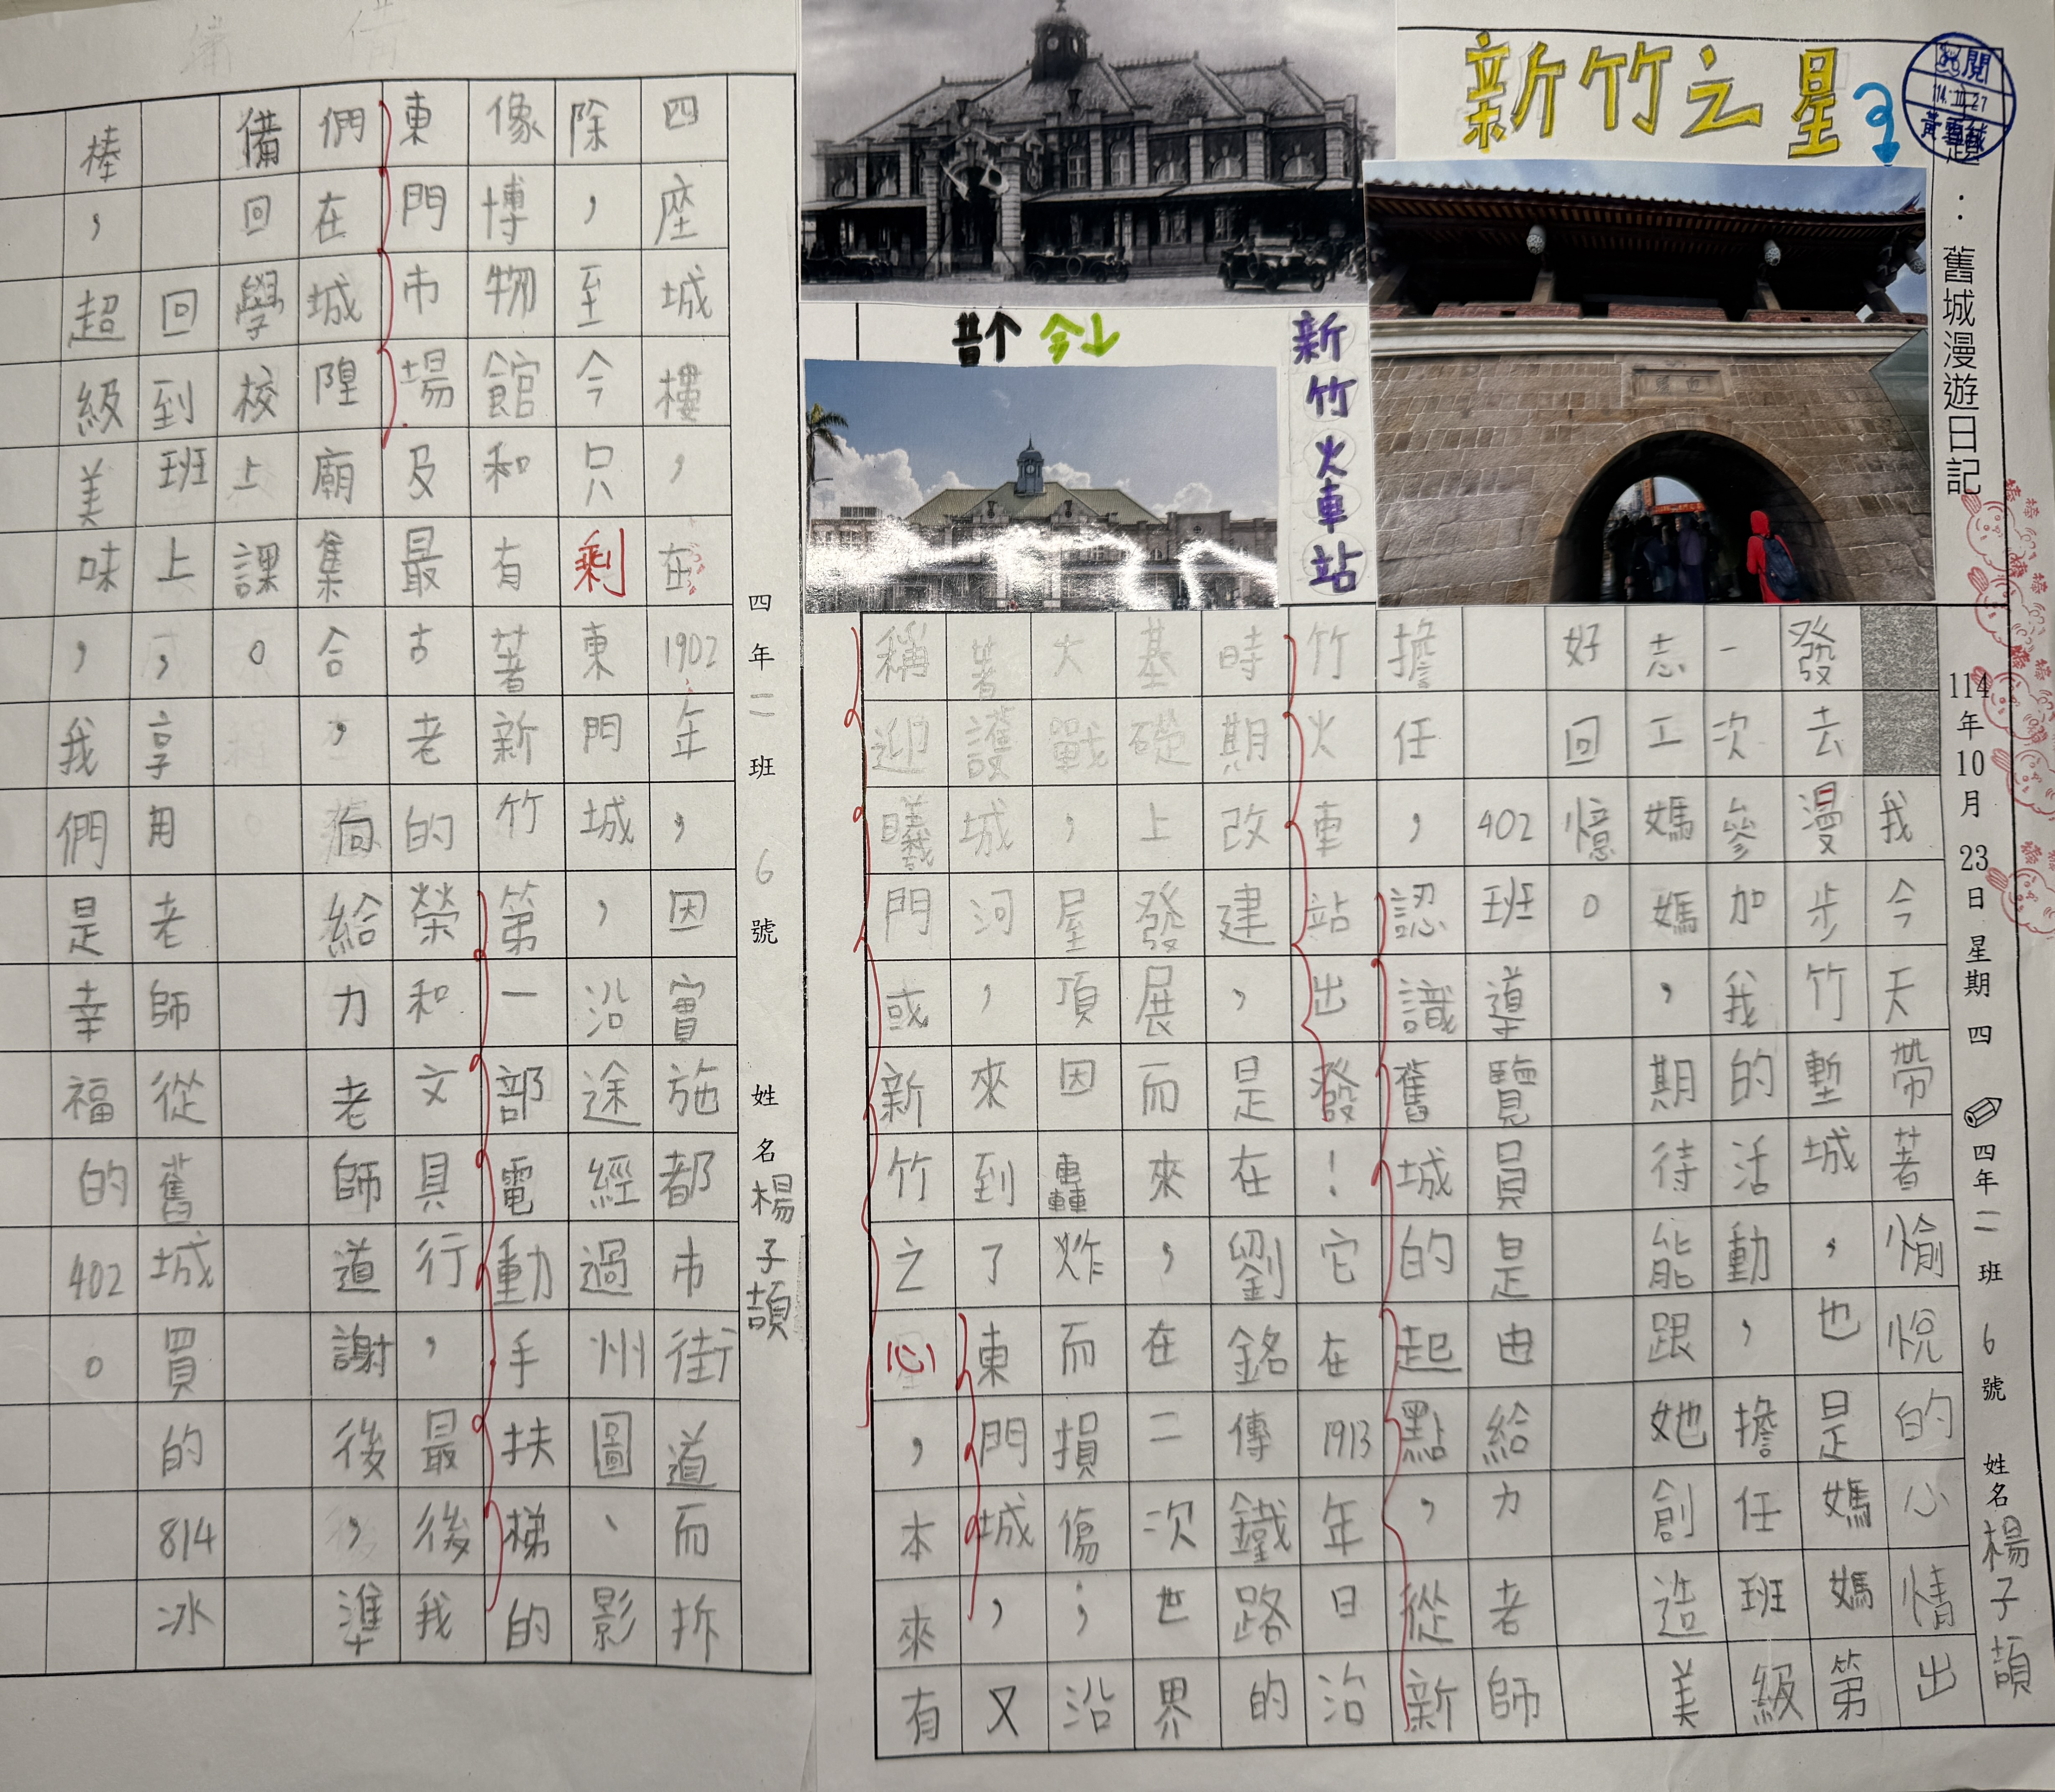 新竹之星
題：舊城漫遊日記
114年10月23日星期四 四年二班 6號 姓名楊子頡
新竹火車站
昔↑ 今↓
我今天帶著愉悅的心情出
發去漫步竹塹城，也是媽媽第
一次參加我的活動，擔任班級
志工媽媽，期待能跟她創造美
好回憶。
402班導覽員是由給力老師
擔任，認識舊城的起點，從新
竹火車站出發！它在1913年日治
時期改建，是在劉銘傳鐵路的
基礎上發展而來，在二次世界
大戰，屋頂因轟炸而損傷；沿
著護城河，來到了東門城，又
稱迎曦門或新竹之心，本來有
四年二班 6號 姓名楊子頡
四座城樓，在1902年，因實施都市街道而拆
除，至今只剩東門城，沿途經過州圖、影
像博物館和有著新竹第一部電動手扶梯的
東門市場及最古老的榮和文具行，最後我
們在城隍廟集合，給力老師道謝後，準
備回學校上課。
回到班上，享用老師從舊城買的814冰
棒，超級美味，我們是幸福的402。